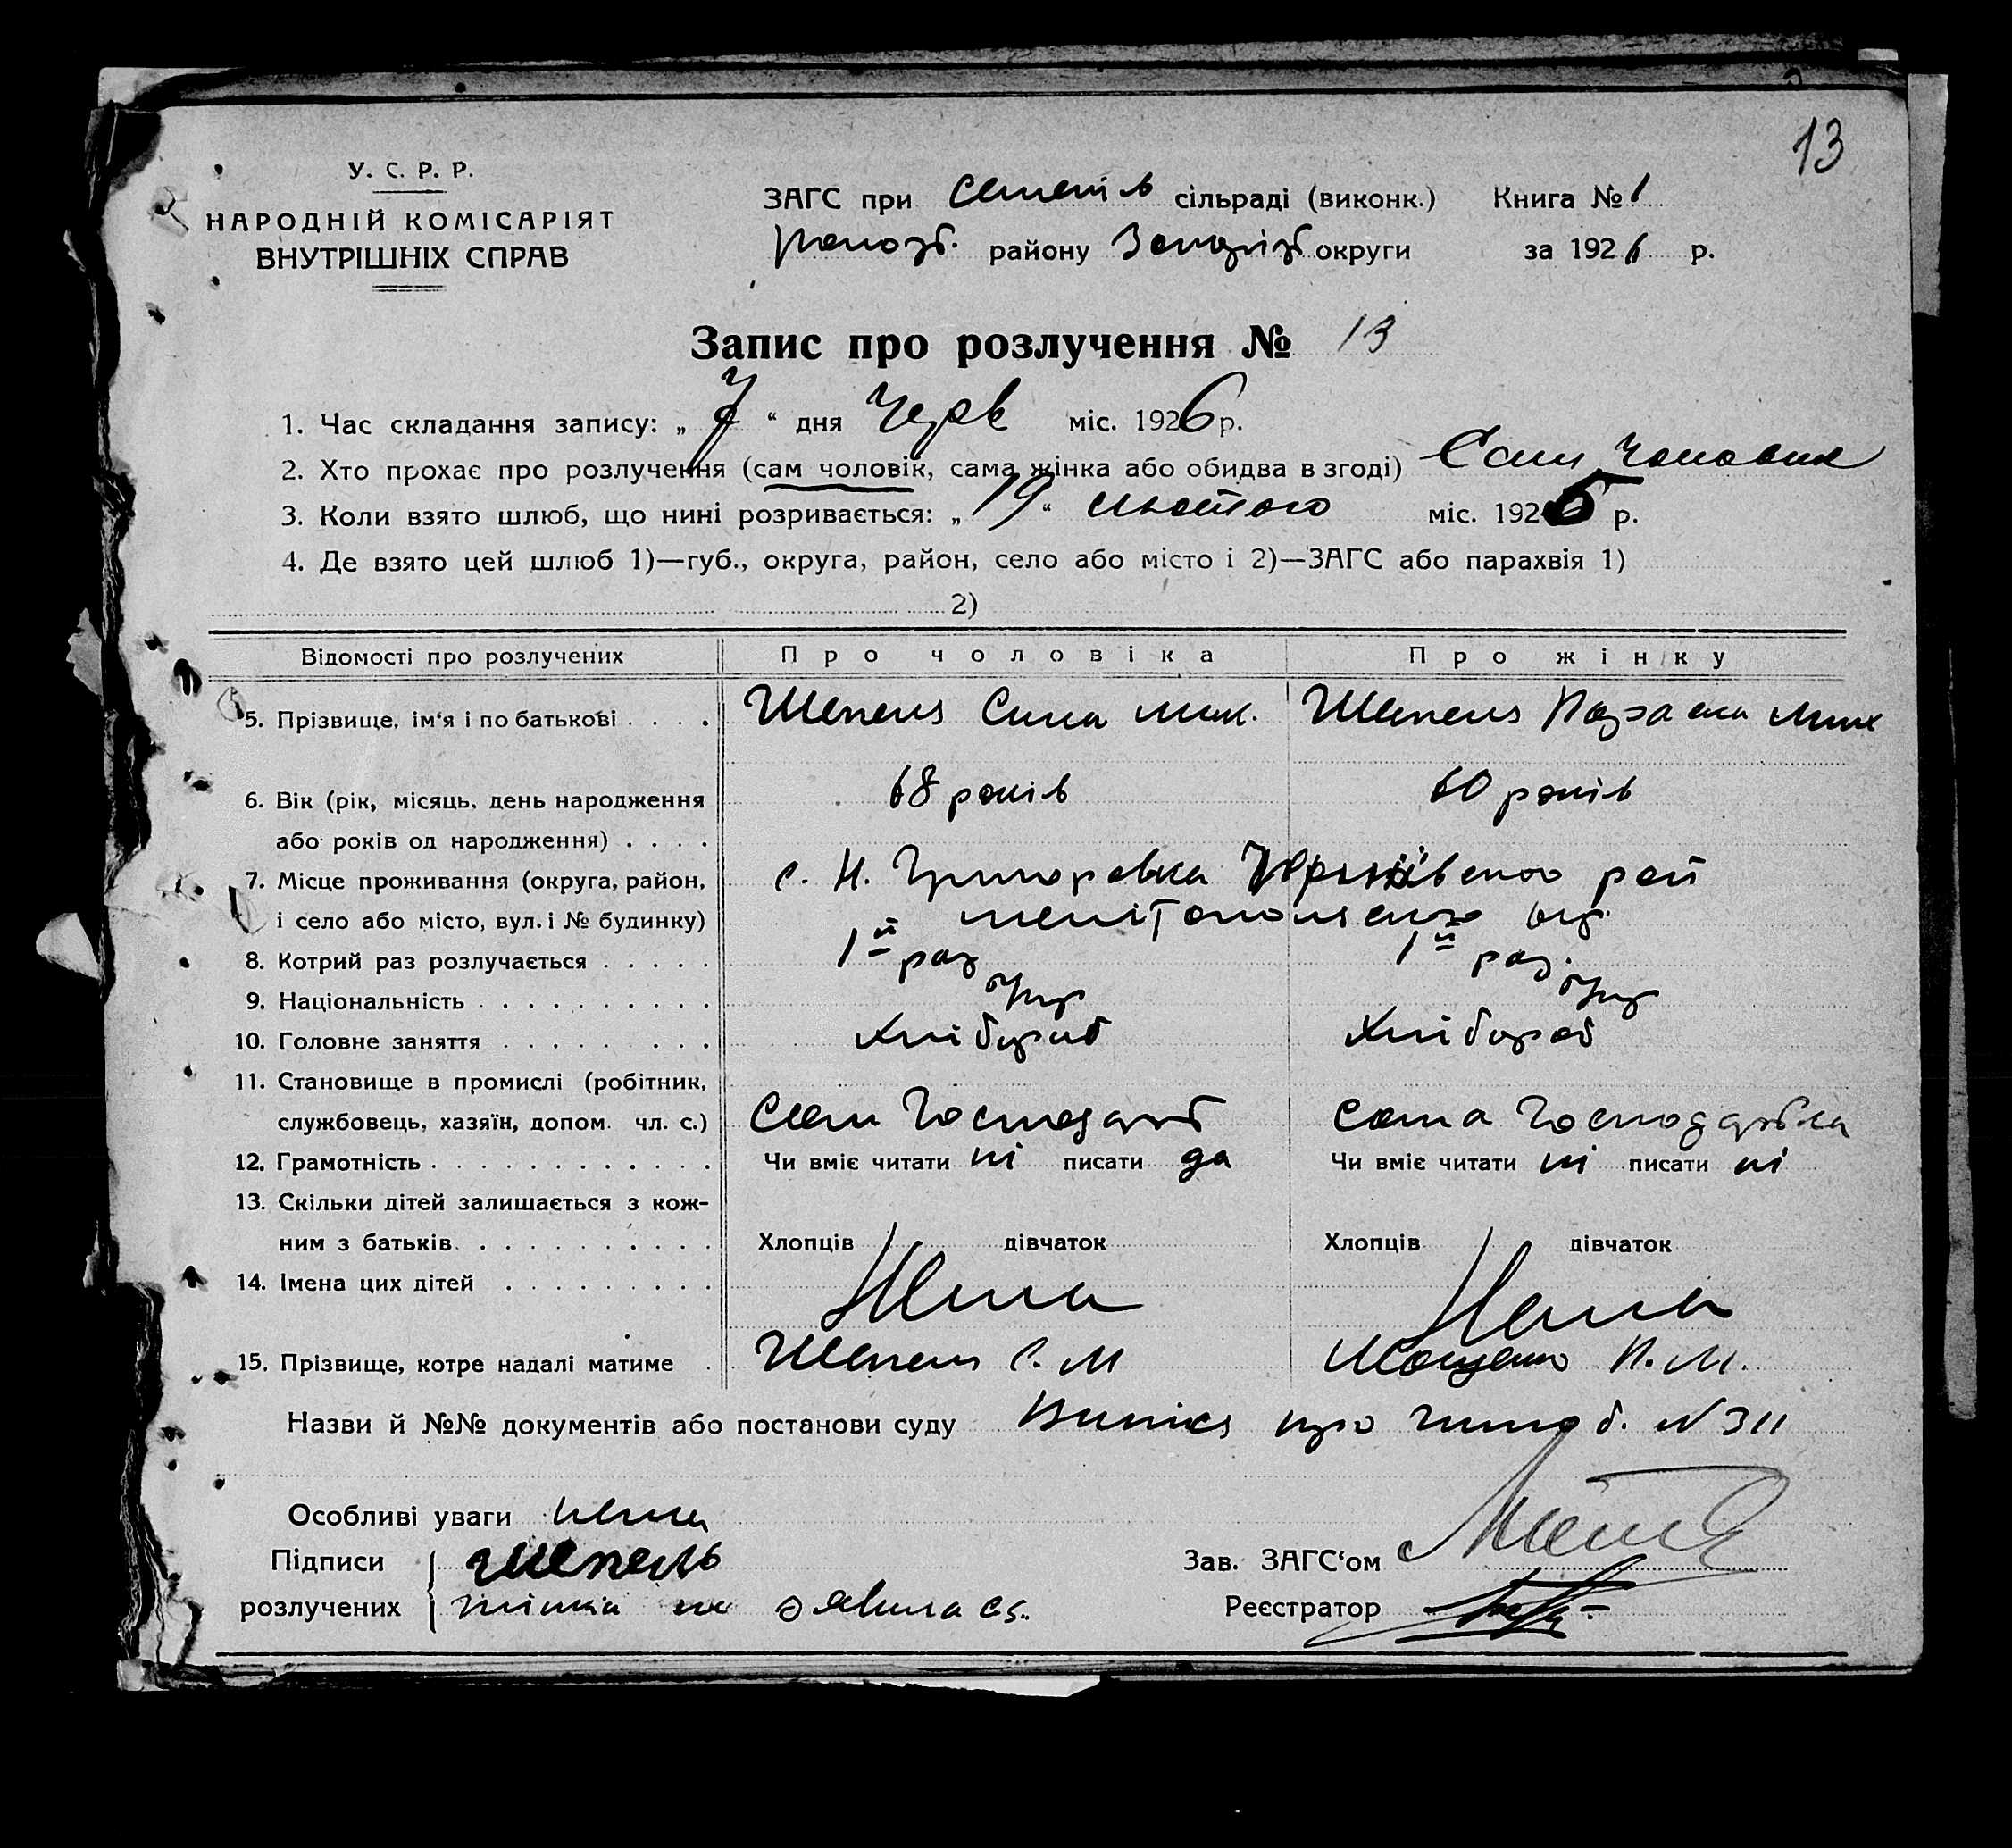 13
У. С. Р. Р.
НАРОДНІЙ КОМІСАРІЯТ
ВНУТРІШНІХ СПРАВ
ЗАГС при сільраді (виконк.) Книга № 1
району округи за 1926 р.
Запис про розлучення № 13
1. Час складання запису: „ 7 “ дня Черв міс. 1926 р.
2. Хто прохає про розлучення (сам чоловік, сама жінка або обидва в згоді) Сам чоловик
3. Коли взято шлюб, що нині розривається: „ 19 “ лютого міс. 1925 р.
4. Де взято цей шлюб 1)—губ., округа, район, село або місто і 2)—ЗАГС або парахвія 1)
2)
Відомості про розлучених Про чоловіка Про жінку
5. Прізвище, ім‘я і по батькові . . . . Шепель Сила Мик. Шепель Параска Мих
6. Вік (рік, місяць, день народження 68 років 60 років
або років од народження) . . . .
7. Місце проживання (округа, район, с. Н. Григоровка рай
і село або місто, вул. і № будинку) мелітопольского окр.
8. Котрий раз розлучається . . . . . 1й раз 1й раз
9. Національність . . . . . . . . . . Укр Укр
10. Головне заняття . . . . . . . . . Хлібороб Хлібороб
11. Становище в промислі (робітник,
службовець, хазяїн, допом. чл. с.) Сам Господарь Сама Господарька
12. Грамотність . . . . . . . . . . . . Чи вміє читати ні писати да Чи вміє читати ні писати ні
13. Скільки дітей залишається з кож-
ним з батьків. . . . . . . . . . . Хлопців дівчаток Хлопців дівчаток
14. Імена цих дітей . . . . . . . . . Нема Нема
15. Прізвище, котре надалі матиме . Шепель С. М П. М.
Назви й №№ документів або постанови суду Випись про шлюб. N 311
Особливі уваги нема
Підписи Шепель Зав. ЗАГС‘ом
розлучених жінка не зявилась. Реєстратор